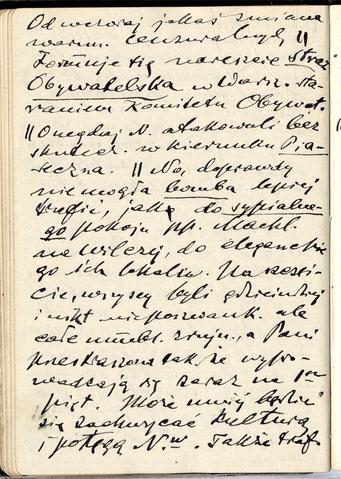 Od wczoraj jakaś zmiana
warun. cenzuralnych ||
Formuje się nareszcie Straż
Obywatelska w Warsz. sta-
raniem Komitetu Obywat.
|| Onegdaj N. atakowali bez
skutecz. w kierunku Pia-
seczna. || No, doprawdy
nie mogła bomba lepiej
trafić, jak do sypialne-
go pokoju pp. Machl.
na Wilczej, do eleganckie-
go ich lokalu. Na szczęś-
cie, wszyscy byli gdzieindziej
i nikt nie poszwank. ale
całe umebl. zrujn., a Pani
przestraszona tak, że wypro-
wadzają się zaraz na 1sze
pięt. Może mniej będzie
się zachwycać kulturą
i potęgą N.w. Także traf-